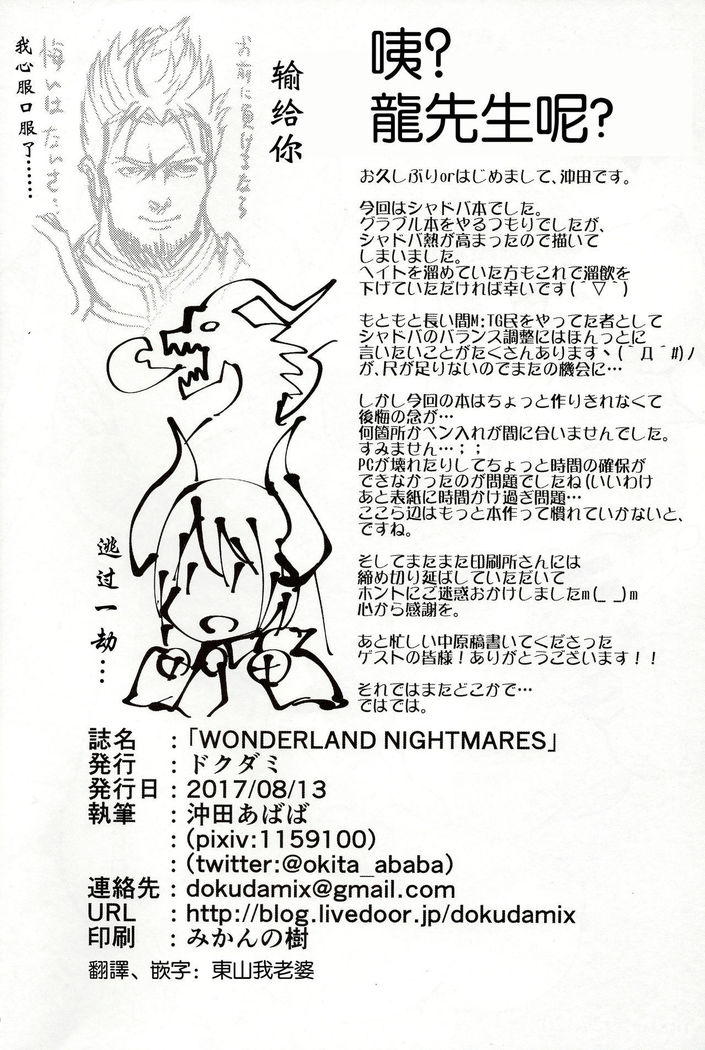 咦?
龍先生呢?
输给你
我心服口服了……
お前に負けるなら
悔いはないさ…
お久しぶりorはじめまして、沖田です。
今回はシャドバ本でした。
グラブル本をやるつもりでしたが、
シャドバ熱が高まったので描いて
しまいました。
ヘイトを溜めていた方もこれで溜飲を
下げていただければ幸いです(´▽`)
もともと長い間M:TG民をやってた者として
シャドバのバランス調整にはほんっとに
言いたいことがたくさんありますヽ(`Д´#)ノ
が、尺が足りないのでまたの機会に…
しかし今回の本はちょっと作りきれなくて
後悔の念が…
何箇所かペン入れが間に合いませんでした。
すみません…；；
PCが壊れたりしてちょっと時間の確保が
できなかったのが問題でしたね(いいわけ
あと表紙に時間かけ過ぎ問題…
ここら辺はもっと本作って慣れていかないと、
ですね。
そしてまたまた印刷所さんには
締め切り延ばしていただいて
ホントにご迷惑おかけしましたm(_ _)m
心から感謝を。
あと忙しい中原稿書いてくださった
ゲストの皆様！ありがとうございます！！
それではまたどこかで…
ではでは。
逃过一劫…
誌名 :「WONDERLAND NIGHTMARES」
発行 : ドクダミ
発行日 : 2017/08/13
執筆 : 沖田あばば
: (pixiv:1159100)
: (twitter:@okita_ababa)
連絡先 : dokudamix@gmail.com
URL : http://blog.livedoor.jp/dokudamix
印刷 : みかんの樹
翻譯、嵌字: 東山我老婆